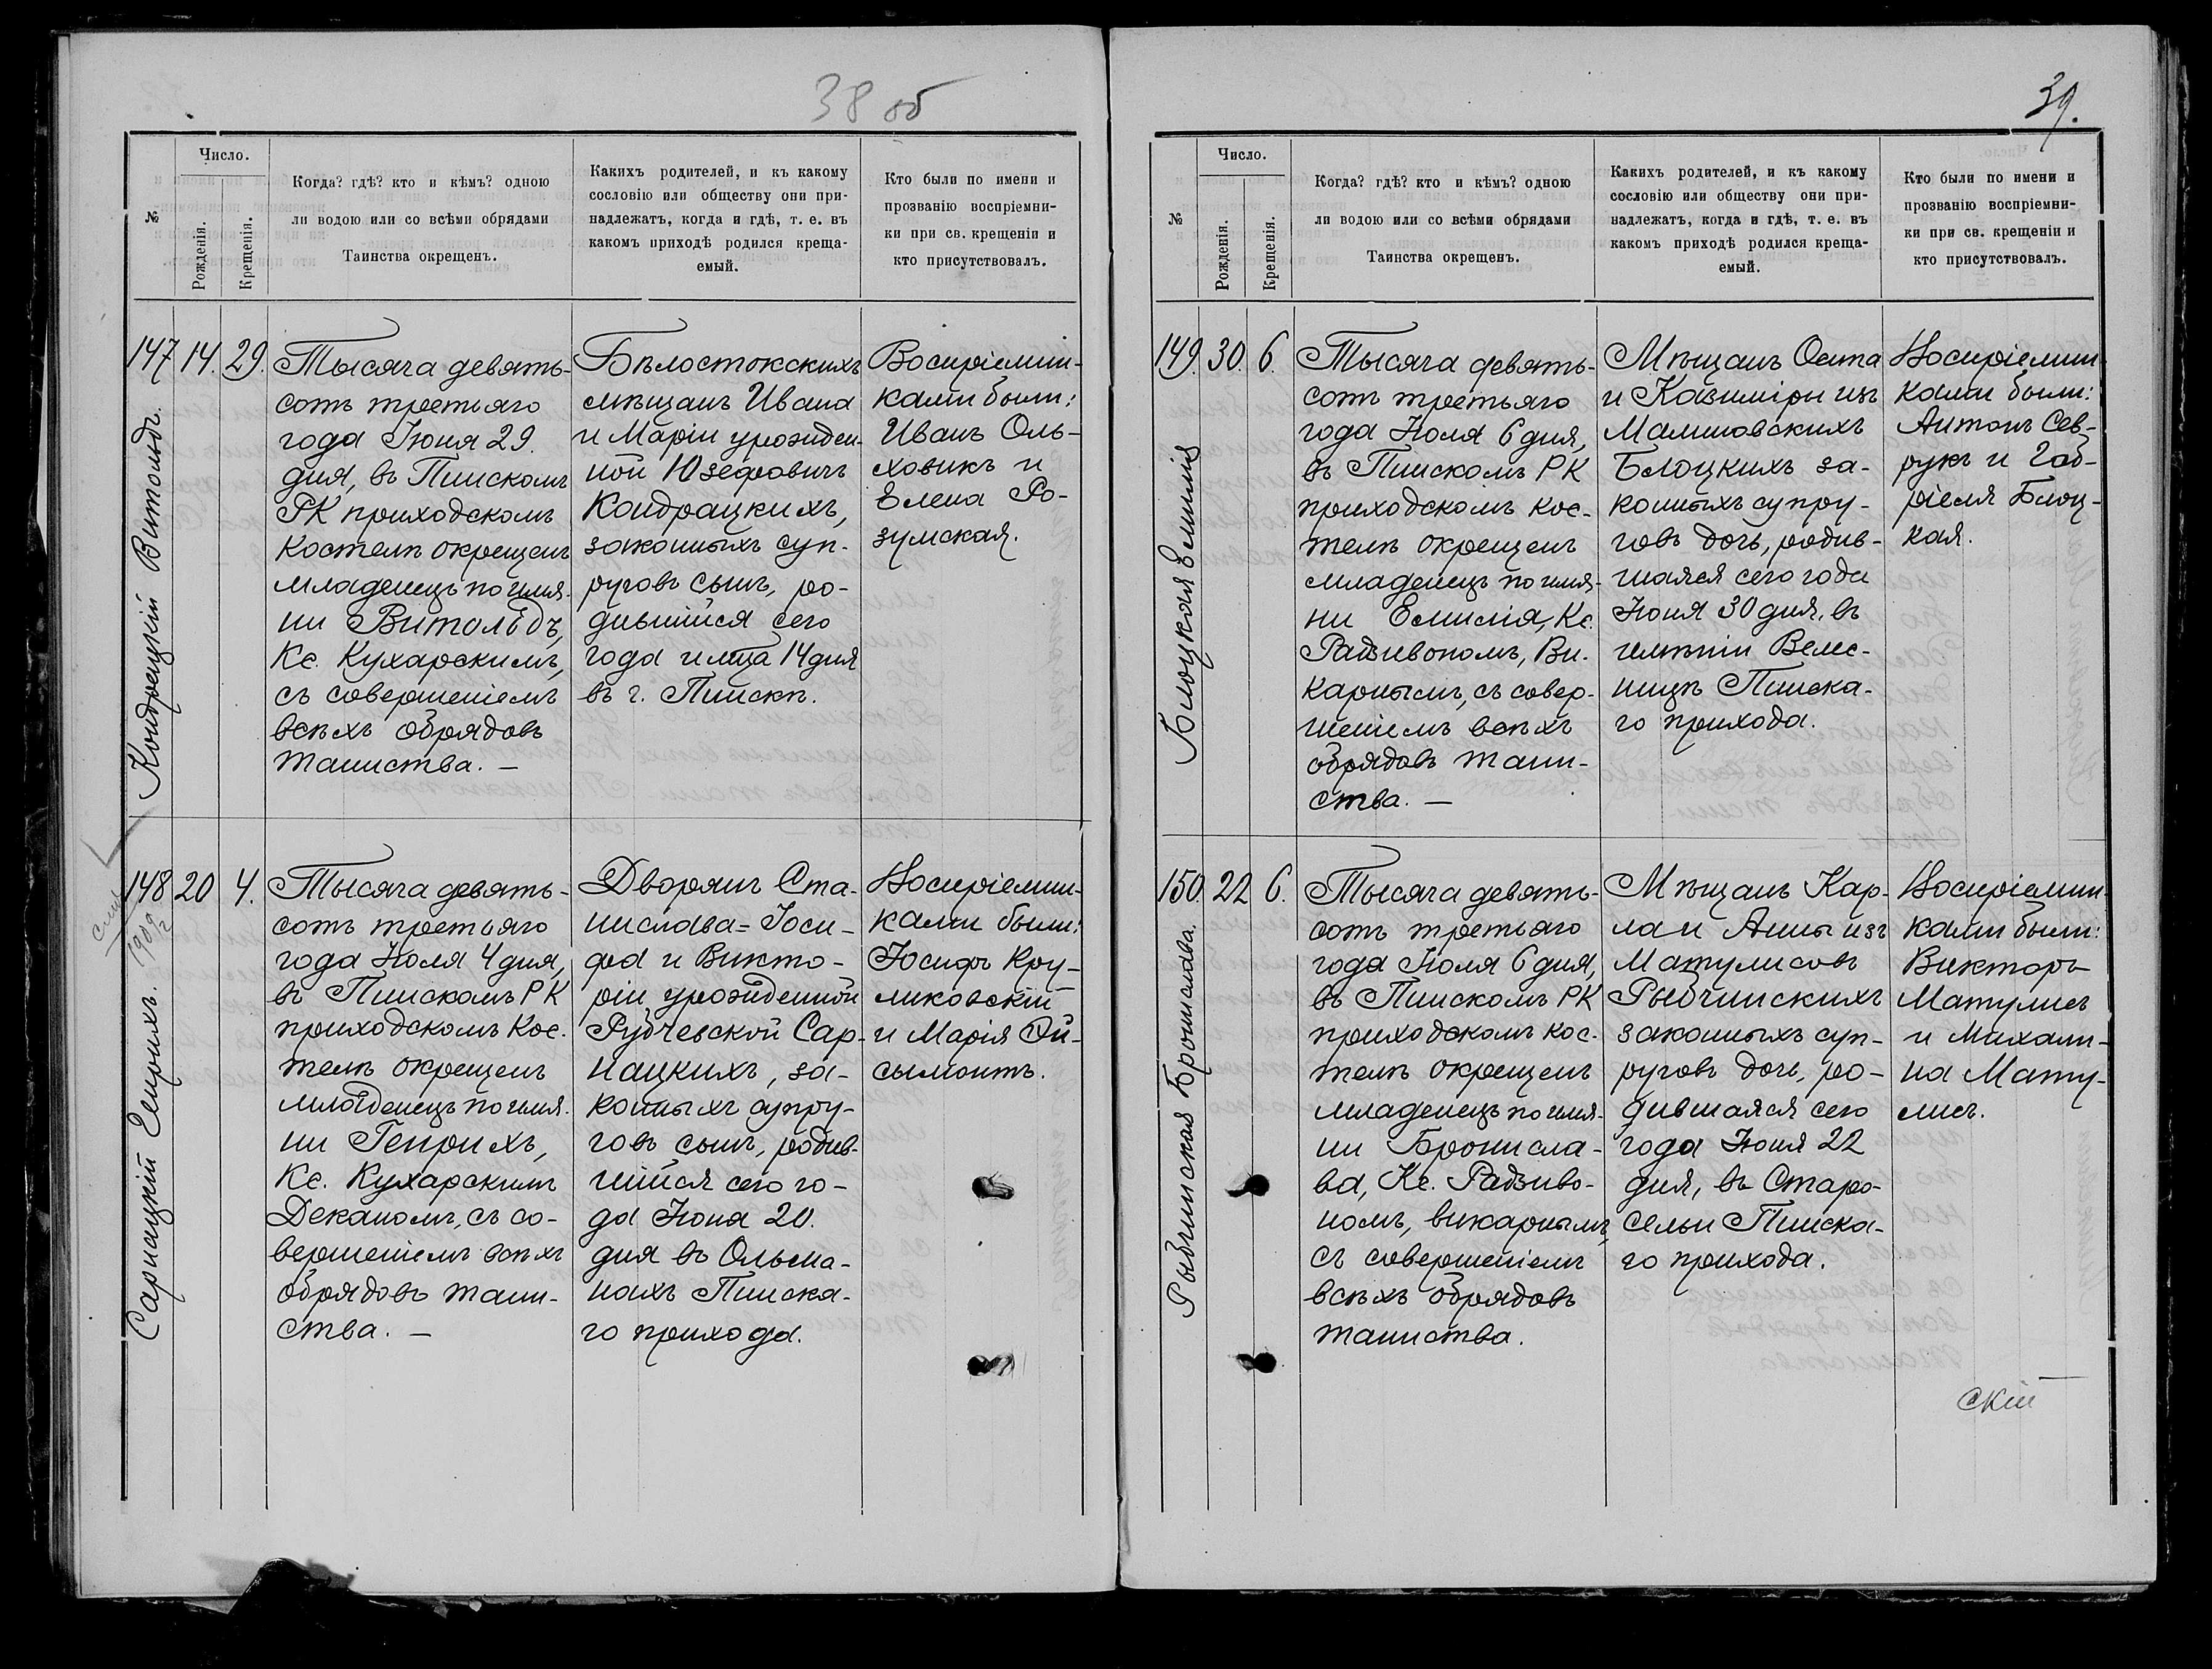 38 об
№
Число.
Рожденія.
Крещенія.
Когда? гдѣ? кто и кѣмъ? одною
ли водою или со всѣми обрядами
Таинства окрещенъ.
Какихъ родителей, и къ какому
сословію или обществу они при-
надлежатъ, когда и гдѣ, т. е. въ
какомъ приходѣ родился креща-
емый.
Кто были по имени и
прозванію воспріемни-
ки при св. крещеніи и
кто присутствовалъ.
147
Кондрацкій Витольдъ.
14.
29.
Тысяча девять-
сотъ третьяго
года Іюня 29.
дня, въ Пинскомъ
РК приходскомъ
костелѣ окрещенъ
младенецъ по имя-
ни Витольдъ,
Кс. Кухарскимъ,
съ совершеніемъ
всѣхъ обрядовъ
таинства. —
Бѣлостокскихъ
мѣщанъ Ивана
и Маріи урожден-
ной Юзефовичъ
Кондрацкихъ,
законныхъ суп-
руговъ сынъ, ро-
дившійся сего
года и мца 14 дня
въ г. Пинскѣ.
Воспріемни-
ками были:
Иванъ Оль-
ховикъ и
Елена Ро-
зумская.
148
1909 г
Сарнацкій Генрихъ.
20
4.
Тысяча девять-
сотъ третьяго
года Іюля 4 дня,
въ Пинскомъ РК
приходскомъ Кос-
телѣ окрещенъ
младенецъ по имя-
ни Генрихъ,
Кс. Кухарскимъ
Деканомъ, съ со-
вершеніемъ всѣхъ
обрядовъ таин-
ства. —
Дворянъ Ста-
нислава=Іоси-
фа и Викто-
ріи урожденной
Рудчевской Сар-
нацкихъ, за-
конныхъ супру-
говъ сынъ, родив-
шійся сего го-
да Іюня 20.
дня въ Ольма-
нахъ Пинска-
го прихода.
Воспріемни-
ками были:
Іосифъ Кру-
ликовскій
и Марія Эй-
сымонтъ.
39.
№
Число.
Рожденія.
Крещенія.
Когда? гдѣ? кто и кѣмъ? одною
ли водою или со всѣми обрядами
Таинства окрещенъ.
Какихъ родителей, и къ какому
сословію или обществу они при-
надлежатъ, когда и гдѣ, т. е. въ
какомъ приходѣ родился креща-
емый.
Кто были по имени и
прозванію воспріемни-
ки при св. крещеніи и
кто присутствовалъ.
149.
Блоцкая Емилія
30.
6.
Тысяча девять-
сотъ третьяго
года Іюля 6 дня,
въ Пинскомъ РК
приходскомъ кос-
телѣ окрещенъ
младенецъ по имя-
ни Емилія, Кс.
Радзивономъ, Ви-
карнымъ, съ совер-
шеніемъ всѣхъ
обрядовъ таин-
ства. —
Мѣщанъ Осипа
и Казиміры изъ
Малиновскихъ
Блоцкихъ за-
конныхъ супру-
говъ дочь, родив-
шаяся сего года
Іюня 30 дня, въ
имѣніи Велес-
ницѣ Пинска-
го прихода.
Воспріемни-
ками были:
Антонъ Сев-
рукъ и Габ-
ріеля Блоц-
кая.
150.
Рыбчинская Бронислава.
22
6.
Тысяча девять-
сотъ третьяго
года Іюля 6 дня,
въ Пинскомъ РК
приходскомъ кос-
телѣ окрещенъ
младенецъ по имя-
ни Брониcла-
ва, Кс. Радзиво-
номъ, викарнымъ,
съ совершеніемъ
всѣхъ обрядовъ
таинства.
Мѣщанъ Кар-
ла и Анны изъ
Матулисовъ
Рыбчинскихъ
законныхъ суп-
руговъ дочь, ро-
дившаяся сего
года Іюня 22
дня, въ Старо-
сельи Пинска-
го прихода.
Воспріемни-
ками были:
Викторъ
Матулисъ
и Михали-
на Мату-
лисъ.
скій